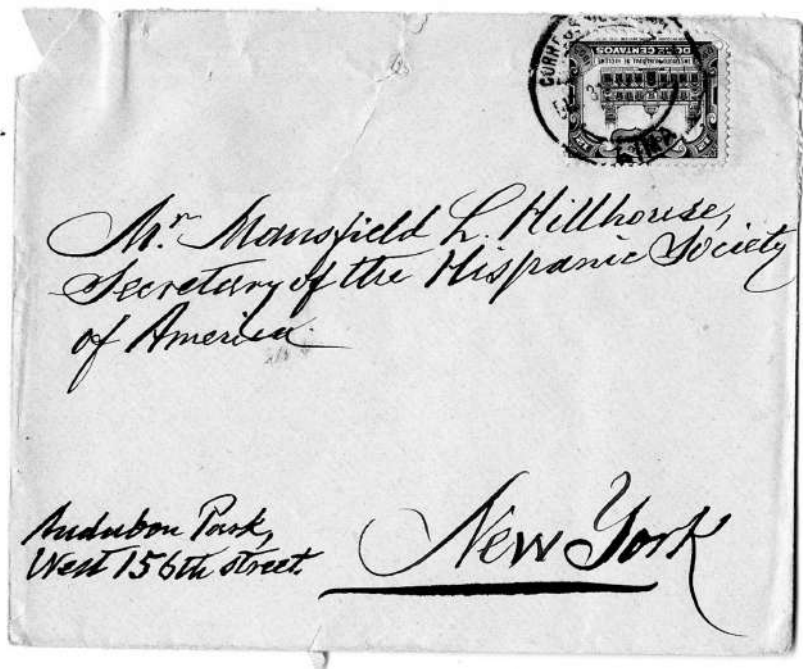 DOCE CENTAVOS
LIMA
Mr. Mansfield L. Hillhouse,
Secretary of the Hispanic Society
of America.
Audubon Park,
West 156th street.
New York